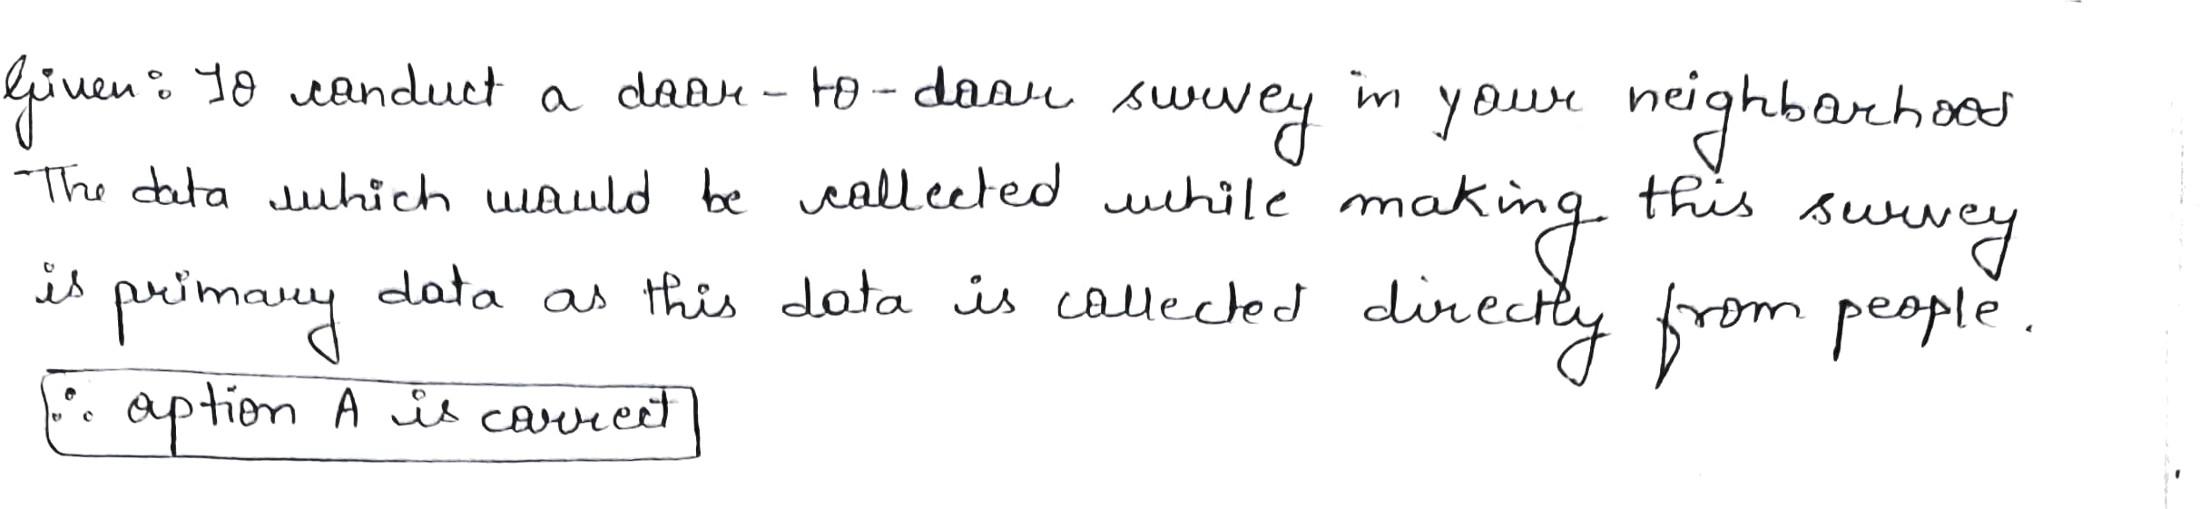 Given: To conduct a door-to-door survey in your neighborhood
The data which would be collected while making this survey
is primary data as this data is collected directly from people.
∴ option A is correct